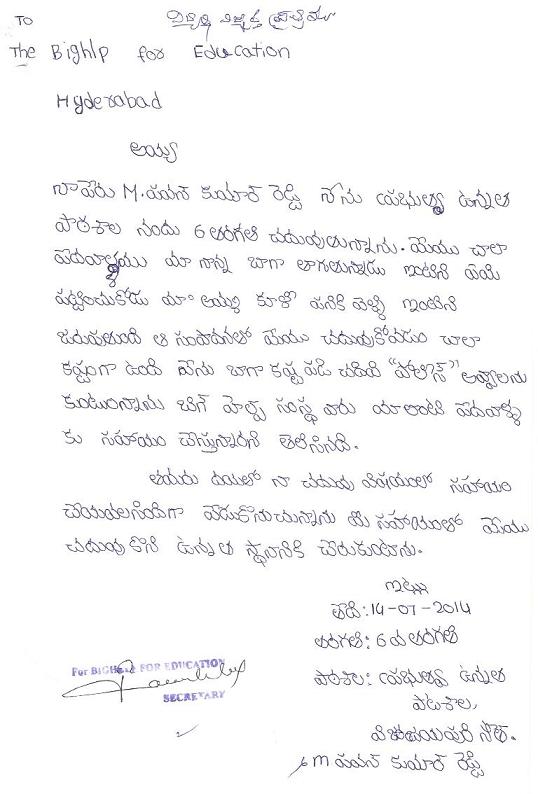 TO
The Bighlp for Education
Hyderabad
అయ్య
నా పేరు M. పవన్ కుమార్ రెడ్డి నేను ప్రభుత్వ ఉన్నత
పాఠశాల నందు 6 తరగతి చదువుతున్నాను. మేము చాలా
పేదవాళ్లము మా నాన్న బాగా తాగుతున్నాడు ఇంటిని
పట్టించుకోడు మా అమ్మ కూలి పనికి వెళ్ళి ఇంటిని
జరుపుతుంది ఆ సంపాదనతో మేము చదువుకోవడం చాలా
కష్టంగా ఉంది నేను బాగా కష్టపడి చదివి "పోలీస్" అవ్వాలను
కుంటున్నాను బిగ్ హెల్ప్ సంస్థ వారు మాలాంటి పేదవాళ్ళు
కు సహాయం చేస్తున్నారని తెలిసినది.
తమరు దయతో నా చదువు విషయంలో సహాయం
చేయవలసిందిగా వేడుకొనుచున్నాను మీ సహాయంతో మేము
చదువుకొని ఉన్నత స్థానానికి చేరుకుంటాను.
ఇట్లు
తేది: 14-07-2014
తరగతి: 6 వ తరగతి
పాఠశాల: ప్రభుత్వ ఉన్నత
పాఠశాల,
విజయపురి సౌత్.
M పవన్ కుమార్ రెడ్డి
For BIGHELP FOR EDUCATION
SECRETARY